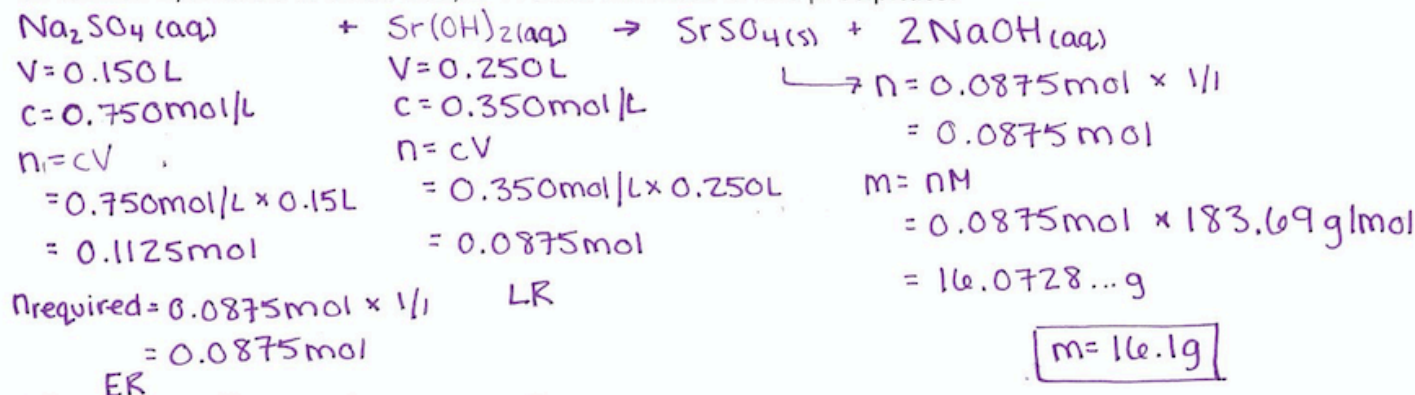 Na₂SO₄ (aq) + Sr(OH)₂(aq) → SrSO₄(s) + 2NaOH(aq)
V=0.150L
c=0.750mol/L
n=cV
=0.750mol/L × 0.15L
= 0.1125mol
nrequired= 0.0875mol × 1/1
= 0.0875mol
ER
V=0.250L
c=0.350mol/L
n=cV
= 0.350mol/L × 0.250L
= 0.0875mol
LR
→ n=0.0875mol × 1/1
= 0.0875mol
m= nM
= 0.0875mol × 183.69g/mol
= 16.0728...g
m=16.1g